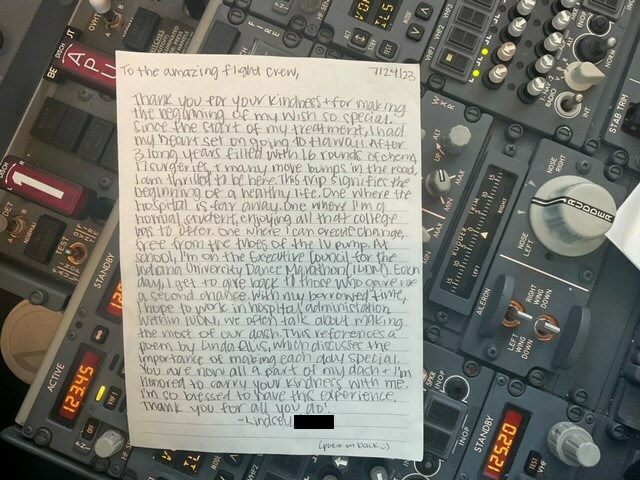 To the amazing flight crew,
7/29/23
Thank you for your kindness + for making
the beginning of my wish so special.
Since the start of my treatment, I had
my heart set on going to Hawaii. After
3 long years filled with 16 rounds of chemo,
surgeries, + many more bumps in the road,
I am thrilled to be here. This trip signifies the
beginning of a healthy life. One where the
hospital is far away. One where I'm a
normal student, enjoying all that college
has to offer. One where I can execute change,
free from the tubes of the IV pump. At
school, I'm on the Executive Council for the
Indiana University Dance Marathon (IUDM). Each
day, I get to give back to those who gave me
a second chance. With my borrowed time,
I hope to work in hospital administration
Within IUDM, we often talk about making
the most of our dash. This references a
poem by Linda Ellis, which discusses the
importance of making each day special.
You are now all a part of my dash + I'm
honored to carry your kindness with me.
I'm so blessed to have this experience.
Thank you for all you do!
-Lindsey
(poem on back :))
APU
1
DISCH
DET
TEST
FIRE
STANDBY
ACTIVE
123.45
STANDBY
125.20
ILS
MODE
ALT
STBY
TEST
VHF 1
VHF 2
VHF 3
INT
STAB TRIM
MAX
MIN
RUDDER
15 10 5
RUDDER
NOSE LEFT
NOSE RIGHT
AILERON
RIGHT WING DOWN
LEFT WING DOWN
INOP
INOP
TEST